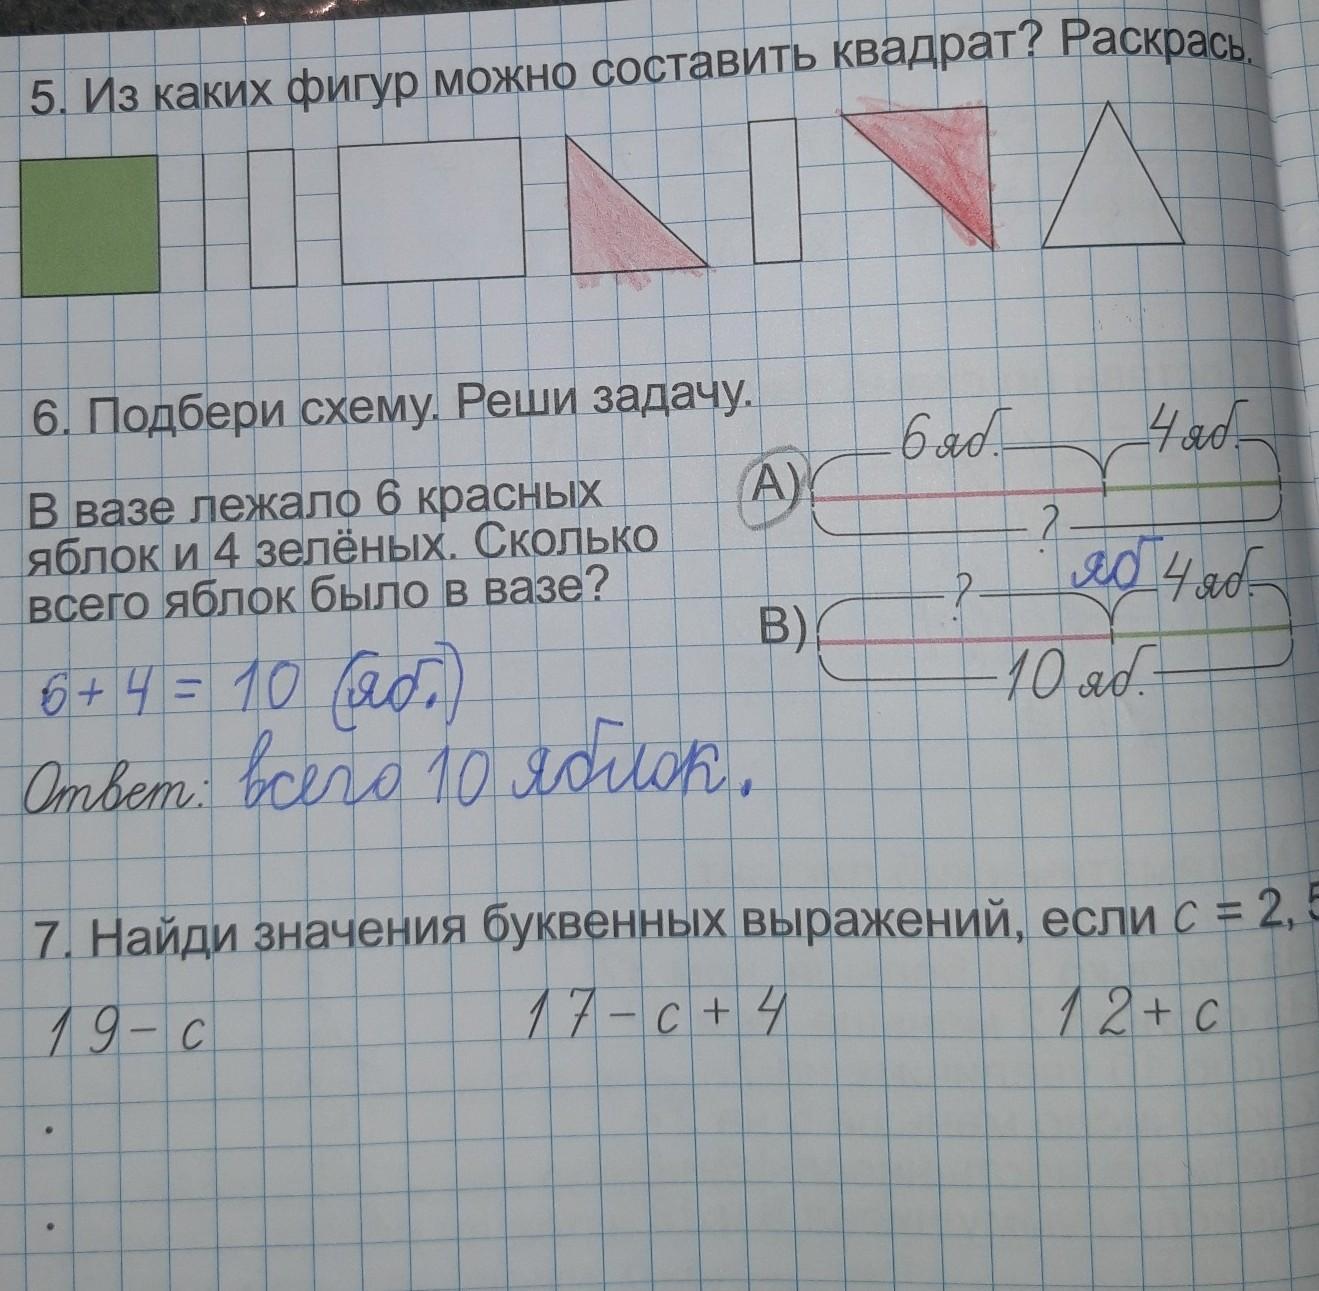 5. Из каких фигур можно составить квадрат? Раскрась.
6. Подбери схему. Реши задачу.
В вазе лежало 6 красных
яблок и 4 зелёных. Сколько
всего яблок было в вазе?
6 + 4 = 10 (яб.)
Ответ: всего 10 яблок.
А) 6 яб. 4 яб.
? яб
В) ? 4 яб.
10 яб.
7. Найди значения буквенных выражений, если с = 2, 5
19 - с 17 - с + 4 12 + с